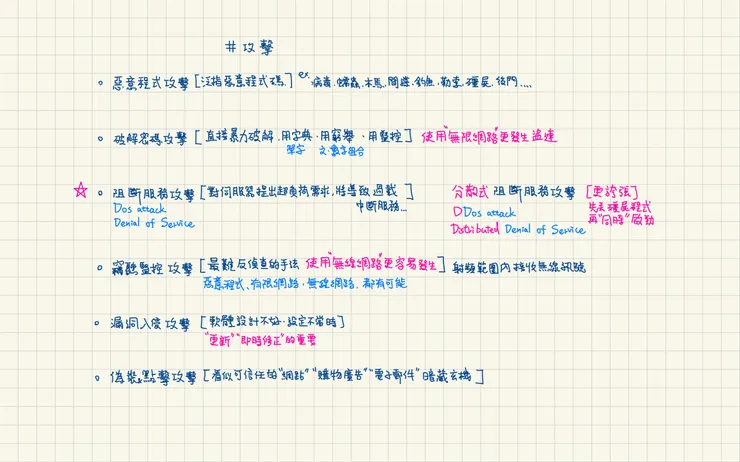 #攻擊
惡意程式攻擊[泛指惡意程式碼] ex. 病毒、蠕蟲、木馬、間諜、釣魚、勒索、殭屍、後門....
破解密碼攻擊[直接暴力破解、用字典、用窮舉、用監控] 使用"無限網路"更發生
單字 文、數字組合
☆ 阻斷服務攻擊[對伺服器提出超負荷需求,將導致過載 分散式 阻斷服務攻擊 [更誇張]
中斷服務... 先丟殭屍程式
Dos attack DDos attack 再"同時"啟動
Denial of Service Distributed Denial of Service
竊聽監控攻擊[最難反偵查的手法 使用"無線網路"更容易發生] 射頻範圍內接收無線訊號
惡意程式、有限網路、無線網路、都有可能
漏洞入侵攻擊[軟體設計不好、設定不當時]
"更新""即時修正"的重要
偽裝點擊攻擊[看似可信任的"網站""購物廣告""電子郵件"暗藏玄機]